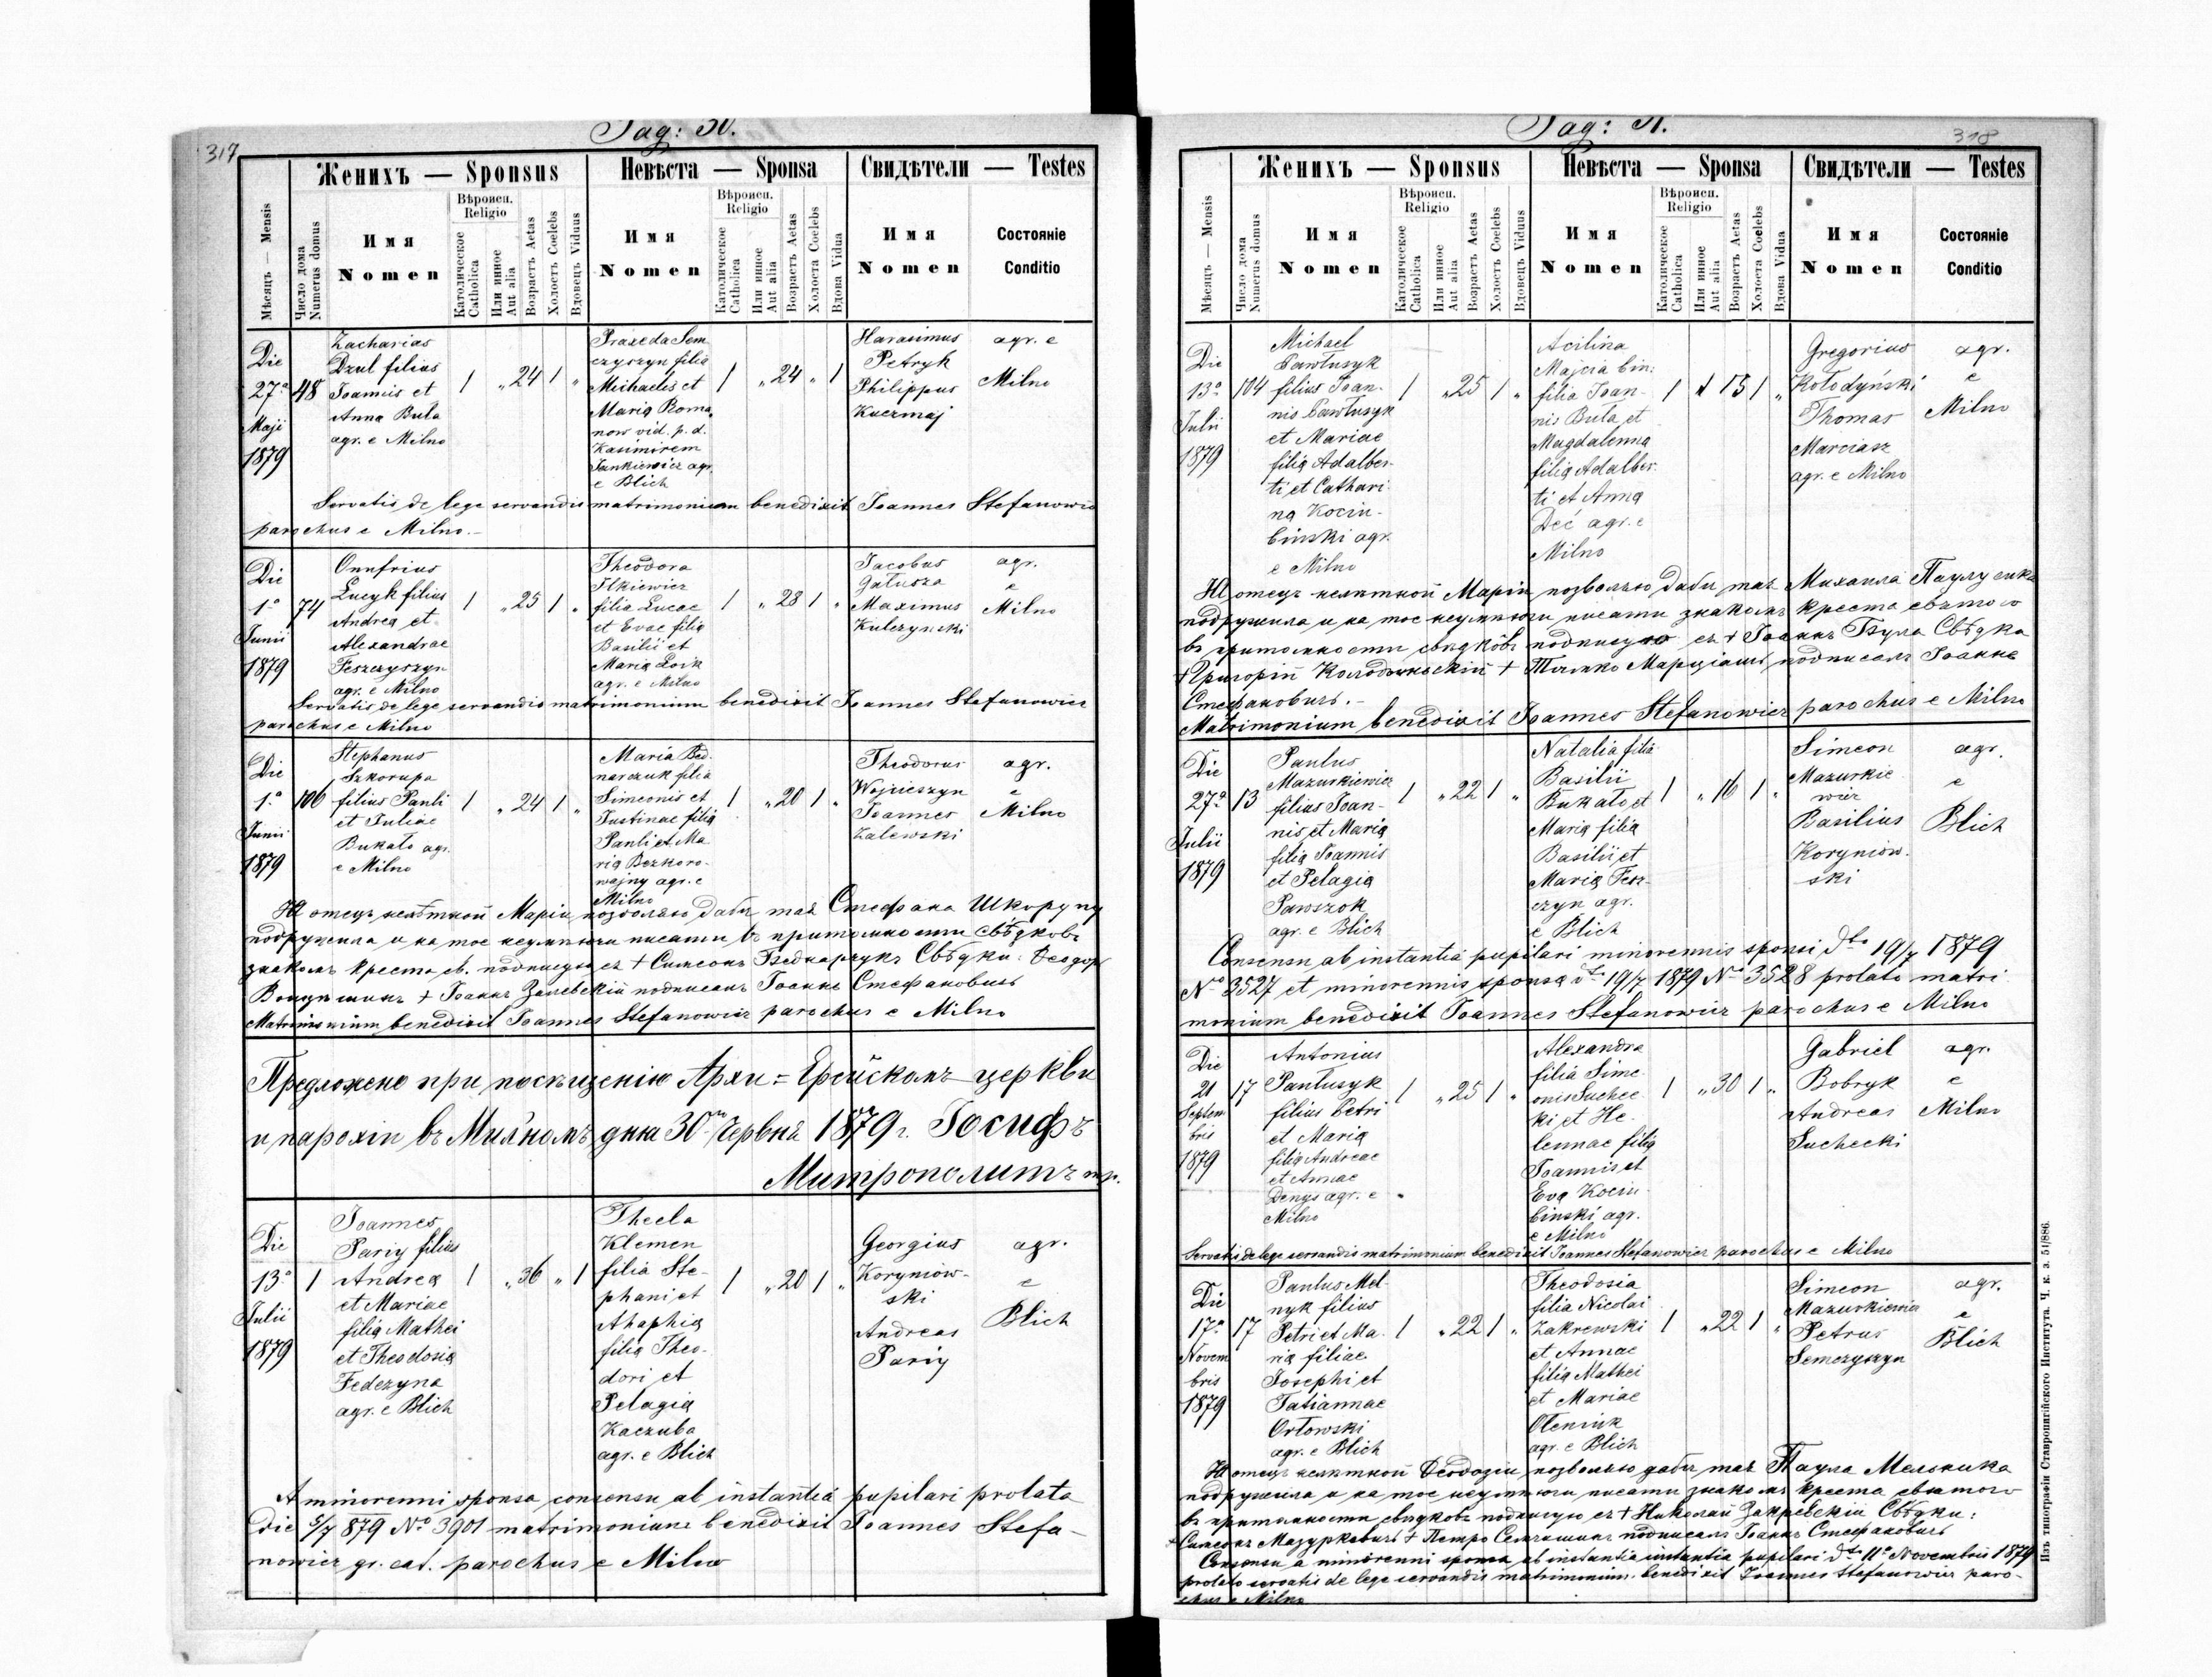 317
Pag: 30.
Женихъ — Sponsus
Невѣста — Sponsa
Свидѣтели — Testes
Мѣсяцъ — Mensis
Число дома
Numerus domus
Имя
Nomen
Вѣроисп.
Religio
Католическое
Catholica
Или инное
Aut alia
Возрастъ Aetas
Холостъ Coelebs
Вдовецъ Viduus
Имя
Nomen
Вѣроисп.
Religio
Католическое
Catholica
Или инное
Aut alia
Возрастъ Aetas
Холоста Coelebs
Вдова Vidua
Имя
Nomen
Состояніе
Conditio
Die
27ª
Maji
1879
48
Zacharias
Dzul filius
Joannis et
Anna Buła
agr. e Milno
1 „ 24 1 „
Praxeda Sem
czyszyn filia
Michaelis et
Maria Roma
now vid. p. d.
Kasimirem
Jankiewicz agr.
e Blich
1 „ 24 „ 1
Harasimus
Petryk
Philippus
Kuczmaj
agr. e
Milno
Servatis de lege servandis matrimonium benedixit Joannes Stefanowicz
parochus e Milno.–
Die
1.ª
Junii
1879
74
Onufrius
Lucyk filius
Andrea et
Alexandrae
Feszczyszyn
agr. e Milno
1 „ 25 1 „
Theodora
Ilkiewicz
filia Lucae
et Evae filia
Basilii et
Maria Łoik
agr. e Milno
1 „ 28 1 „
Jacobus
Gałusza
Maximus
Kulczynski
agr.
e
Milno
Servatis de lege servandis matrimonium benedixit Joannes Stefanowicz
parochus e Milno
Die
1.ª
Junii
1879
106
Stephanus
Szkorupa
filius Pauli
et Juliae
Bukało agr.
e Milno
1 „ 24 1 „
Maria Bed
narczuk filia
Simeonis et
Justinae filia
Pauli et Ma
ria Bezkoro-
wajny agr. e
Milno
1 „ 20 1 „
Theodorus
Wojcieszyn
Joannes
Zalewski
agr.
e
Milno
Я отецъ нелѣтной Маріи позволяю дабы тая Стефана Шкорупу
подружила и на тое неумѣючи писати въ притомности свѣдковъ
знакомъ креста св. подписуюся + Симеонъ Беднарчукъ Свѣдки: Ѳеодоръ
Войцишинъ + Іоаннъ Залевскій подписалъ Іоаннъ Стефановичъ
Matrimonium benedixit Joannes Stefanowicz parochus e Milno
Предложено при посѣщенію Архи=Ерейскомъ церкви
и парохіи въ Мильномъ дня 30го Червня 1879 г. Іосифъ
Митрополитъ mp.
Die
13ª
Julii
1879
1
Joannes
Pariy filius
Andrea
et Mariae
filia Mathei
et Theodosia
Federyna
agr. e Blich
1 „ 36 „ 1
Thecla
Klemen
filia Ste-
phani et
Ahaphia
filia Theo-
dori et
Pelagia
Kaczuba
agr. e Blich
1 „ 20 1 „
Georgius
Koryniow-
ski
Andreas
Pariy
agr.
e
Blich
A minorenni sponsa consensu ab instantiá pupilari prolata
die 5/7 879 No 3901 matrimonium benedixit Joannes Stefa-
nowicz gr. cat. parochus e Milno
Pag: 31.
318
Женихъ — Sponsus
Невѣста — Sponsa
Свидѣтели — Testes
Мѣсяцъ — Mensis
Число дома
Numerus domus
Имя
Nomen
Вѣроисп.
Religio
Католическое
Catholica
Или инное
Aut alia
Возрастъ Aetas
Холостъ Coelebs
Вдовецъ Viduus
Имя
Nomen
Вѣроисп.
Religio
Католическое
Catholica
Или инное
Aut alia
Возрастъ Aetas
Холоста Coelebs
Вдова Vidua
Имя
Nomen
Состояніе
Conditio
Die
13ª
Julii
1879
104
Michael
Pawłusyk
filius Joan-
nis Pawłusyk
et Mariae
filia Adalber-
ti et Cathari
na Kociu-
binski agr.
e Milno
1 „ 25 1 „
Acilina
filia Joan-
nis Buła et
Magdalenna
filia Adalber-
ti et Anna
Deć agr. e
Milno
1 15 1 „
Gregorius
Kołodyński
Thomas
Marciasz
agr. e Milno
agr.
e
Milno
Я отецъ нелѣтной Маріи позволяю дабы тая Михаила Паулусика
подружила и на тое неумѣючи писати знакомъ креста святого
въ притомности свѣдковъ подписуюся + Іоаннъ Була Свѣдки
+ Григорій Колодыньскій + Томко Марціашъ подписалъ Іоаннъ
Стефановичъ.–
Matrimonium benedixit Joannes Stefanowicz parochus e Milno
Die
27ª
Julii
1879
13
Paulus
Mazurkiewicz
filius Joan-
nis et Maria
filia Joannis
et Pelagia
Pawszok
agr. e Blich
1 „ 22 1 „
Natalia filia
Basilii
Bukało et
Maria filia
Basilii et
Maria Fesz-
czyn agr.
e Blich
1 „ 16 1 „
Simeon
Mazurkie
wicz
Basilius
Koryniow-
ski
agr.
e
Blich
Consensu ab instantiá pupilari minorennis sponsi dto 19/7 1879
No 3527 et minorennis sponsa dto 19/7 1879 No 3528 prolato matri
monium benedixit Joannes Stefanowicz parochus e Milno
Die
21
Septem
bris
1879
17
Antonius
Panłusyk
filius Petri
et Maria
filia Andreae
et Annae
Denys agr. e
Milno
1 „ 25 1 „
Alexandra
filia Sime-
onis Suchec
ki et He-
lennae filia
Joannis et
Eva Kociu-
binski agr.
e Milno
1 „ 30 1 „
Gabriel
Bobryk
Andreas
Suchecki
agr.
e
Milno
Servatis de lege servandis matrimonium benedixit Joannes Stefanowicz parochus e Milno
Die
17ª
Novem
bris
1879
17
Paulus Mel-
nyk filius
Petri et Ma-
ria filiae
Josephi et
Tatiannae
Orłowski
agr. e Blich
1 „ 22 1 „
Theodosia
filia Nicolai
Zakrewski
et Annae
filia Mathei
et Mariae
Oleniuk
agr. e Blich
1 „ 22 1 „
Simeon
Mazurkiewicz
Petrus
Semczyszyn
agr.
e
Blich
Я отецъ нелѣтной Ѳеодозіи позволяю дабы тая Паула Мельника
подружила и на тое неумѣючи писати знакомъ креста святого
въ притомности свѣдковъ подписуюся + Николай Закревскій Свѣдки:
+ Симеонъ Мазуркевичъ + Петро Семчишинъ подписалъ Іоаннъ Стефановичъ
Consensu a minorenni sponsa ab instantia instantia pupilari dto 11ª Novembris 1879
prolato servatis de lege servandis matrimonium benedixit Joannes Stefanowicz paro-
chus e Milno
Изъ типографіи Ставропигійского Института. Ч. к. з. 51/886.